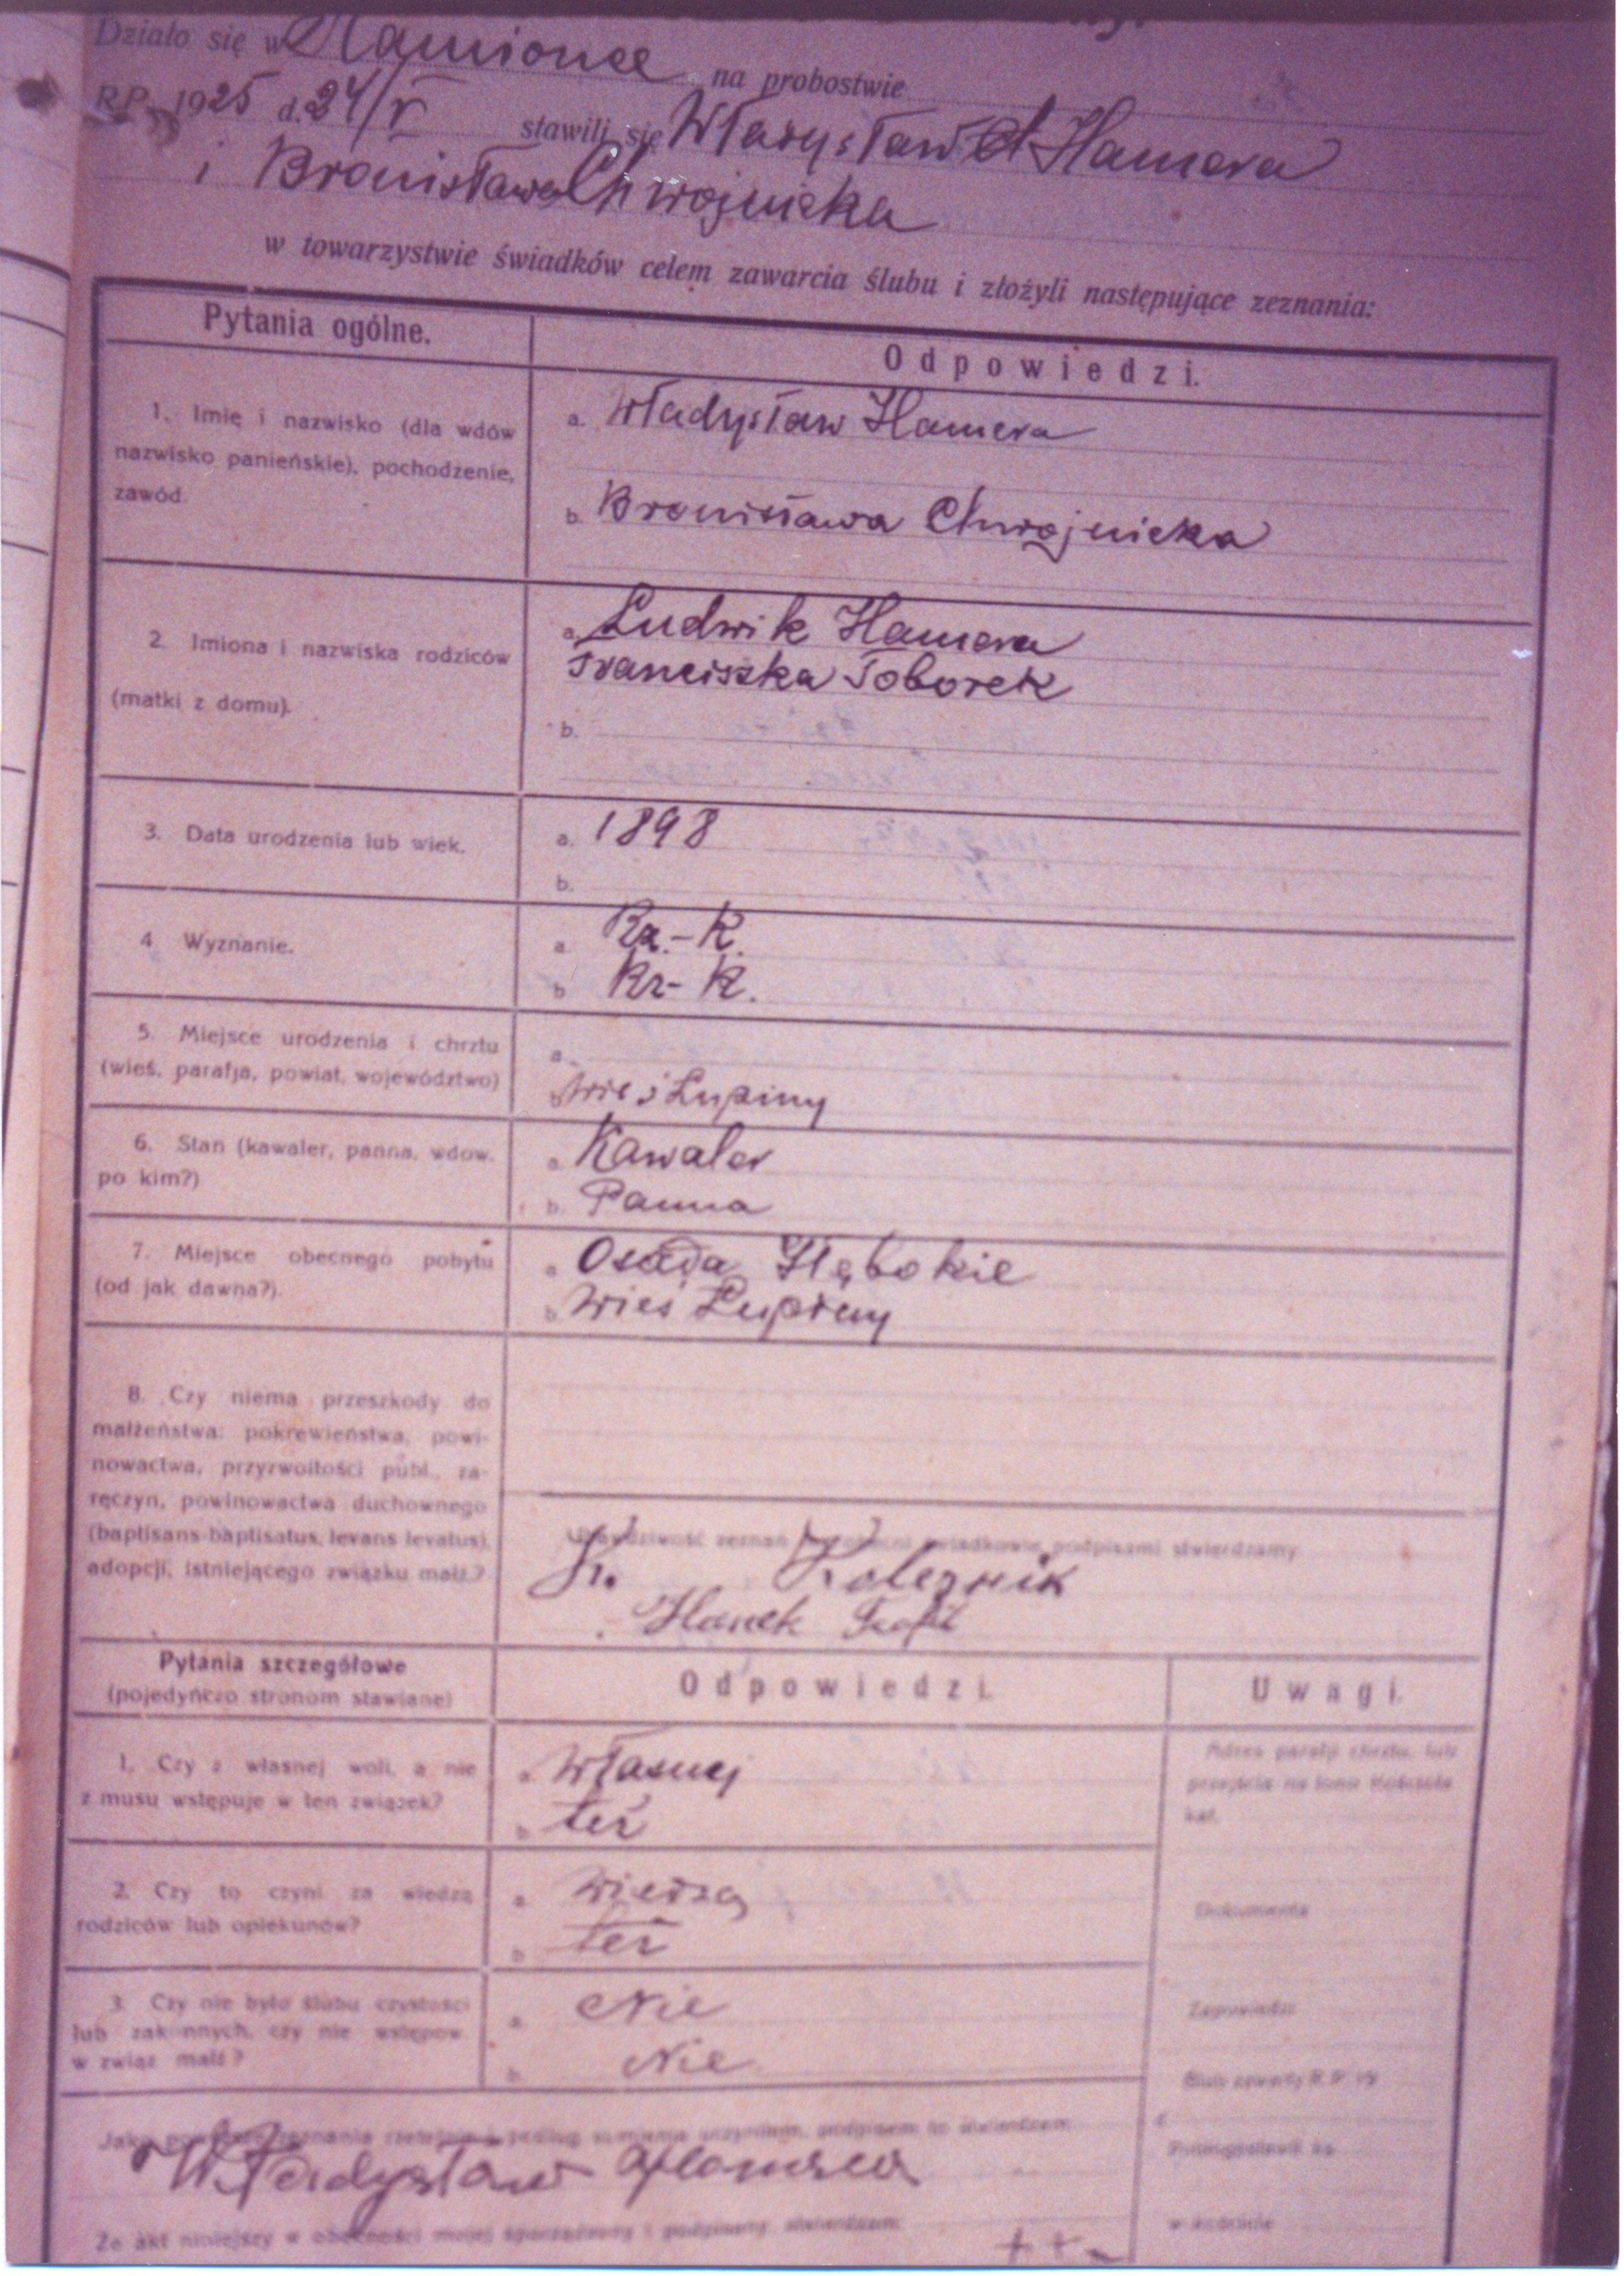 Działo się w Kamionce na probostwie
R.P. 1925 d. 24/V stawili się Władysław Hamera
i Bronisława Chwojnicka
w towarzystwie świadków celem zawarcia ślubu i złożyli następujące zeznania:
Pytania ogólne.
Odpowiedzi.
1. Imię i nazwisko (dla wdów
nazwisko panieńskie), pochodzenie,
zawód.
a. Władysław Hamera
b. Bronisława Chwojnicka
2. Imiona i nazwiska rodziców
(matki z domu).
a. Ludwik Hamera
Franciszka Toborek
b.
3. Data urodzenia lub wiek.
a. 1898
b.
4 Wyznanie.
a. Rz.-K.
b Rz-K.
5. Miejsce urodzenia i chrztu
(wieś, parafja, powiat, województwo)
a.
b Wieś Łupiny
6. Stan (kawaler, panna, wdow.
po kim?)
a. Kawaler
b. Panna
7. Miejsce obecnego pobytu
(od jak dawna?).
a Osada Głębokie
b Wieś Łupiny
8. Czy niema przeszkody do
małżeństwa: pokrewieństwa, powi-
nowactwa, przyzwoitości publ., za-
ręczyn, powinowactwa duchownego
(baptisans-baptisatus, levans levatus),
adopcji, istniejącego związku małż.?
zeznań świadkowie podpisami stwierdzamy
Koleznik
Hanek
Pytania szczegółowe
(pojedyńczo stronom stawiane)
Odpowiedzi.
Uwagi.
1. Czy z własnej woli, a nie
z musu wstępuje w ten związek?
a. Własnej
b też
2. Czy to czyni za wiedzą
rodziców lub opiekunów?
a. Wiedzą
b też
3. Czy nie było ślubu czystości
lub zakonnych, czy nie wstępow.
w związ małż?
a. Nie
b. Nie
Adres parafji chrztu, lub
przejścia na łono Kościoła
kat.
Dokumenta
Zapowiedzi
Ślub zawarty R.P. 19
d.
Pobłogosławił ks.
w kościele
Jako zeznania podpisem to stwierdzam:
Władysław Hamera
Że akt niniejszy w obecności mojej sporządzony i podpisany, stwierdzam:
+ + -